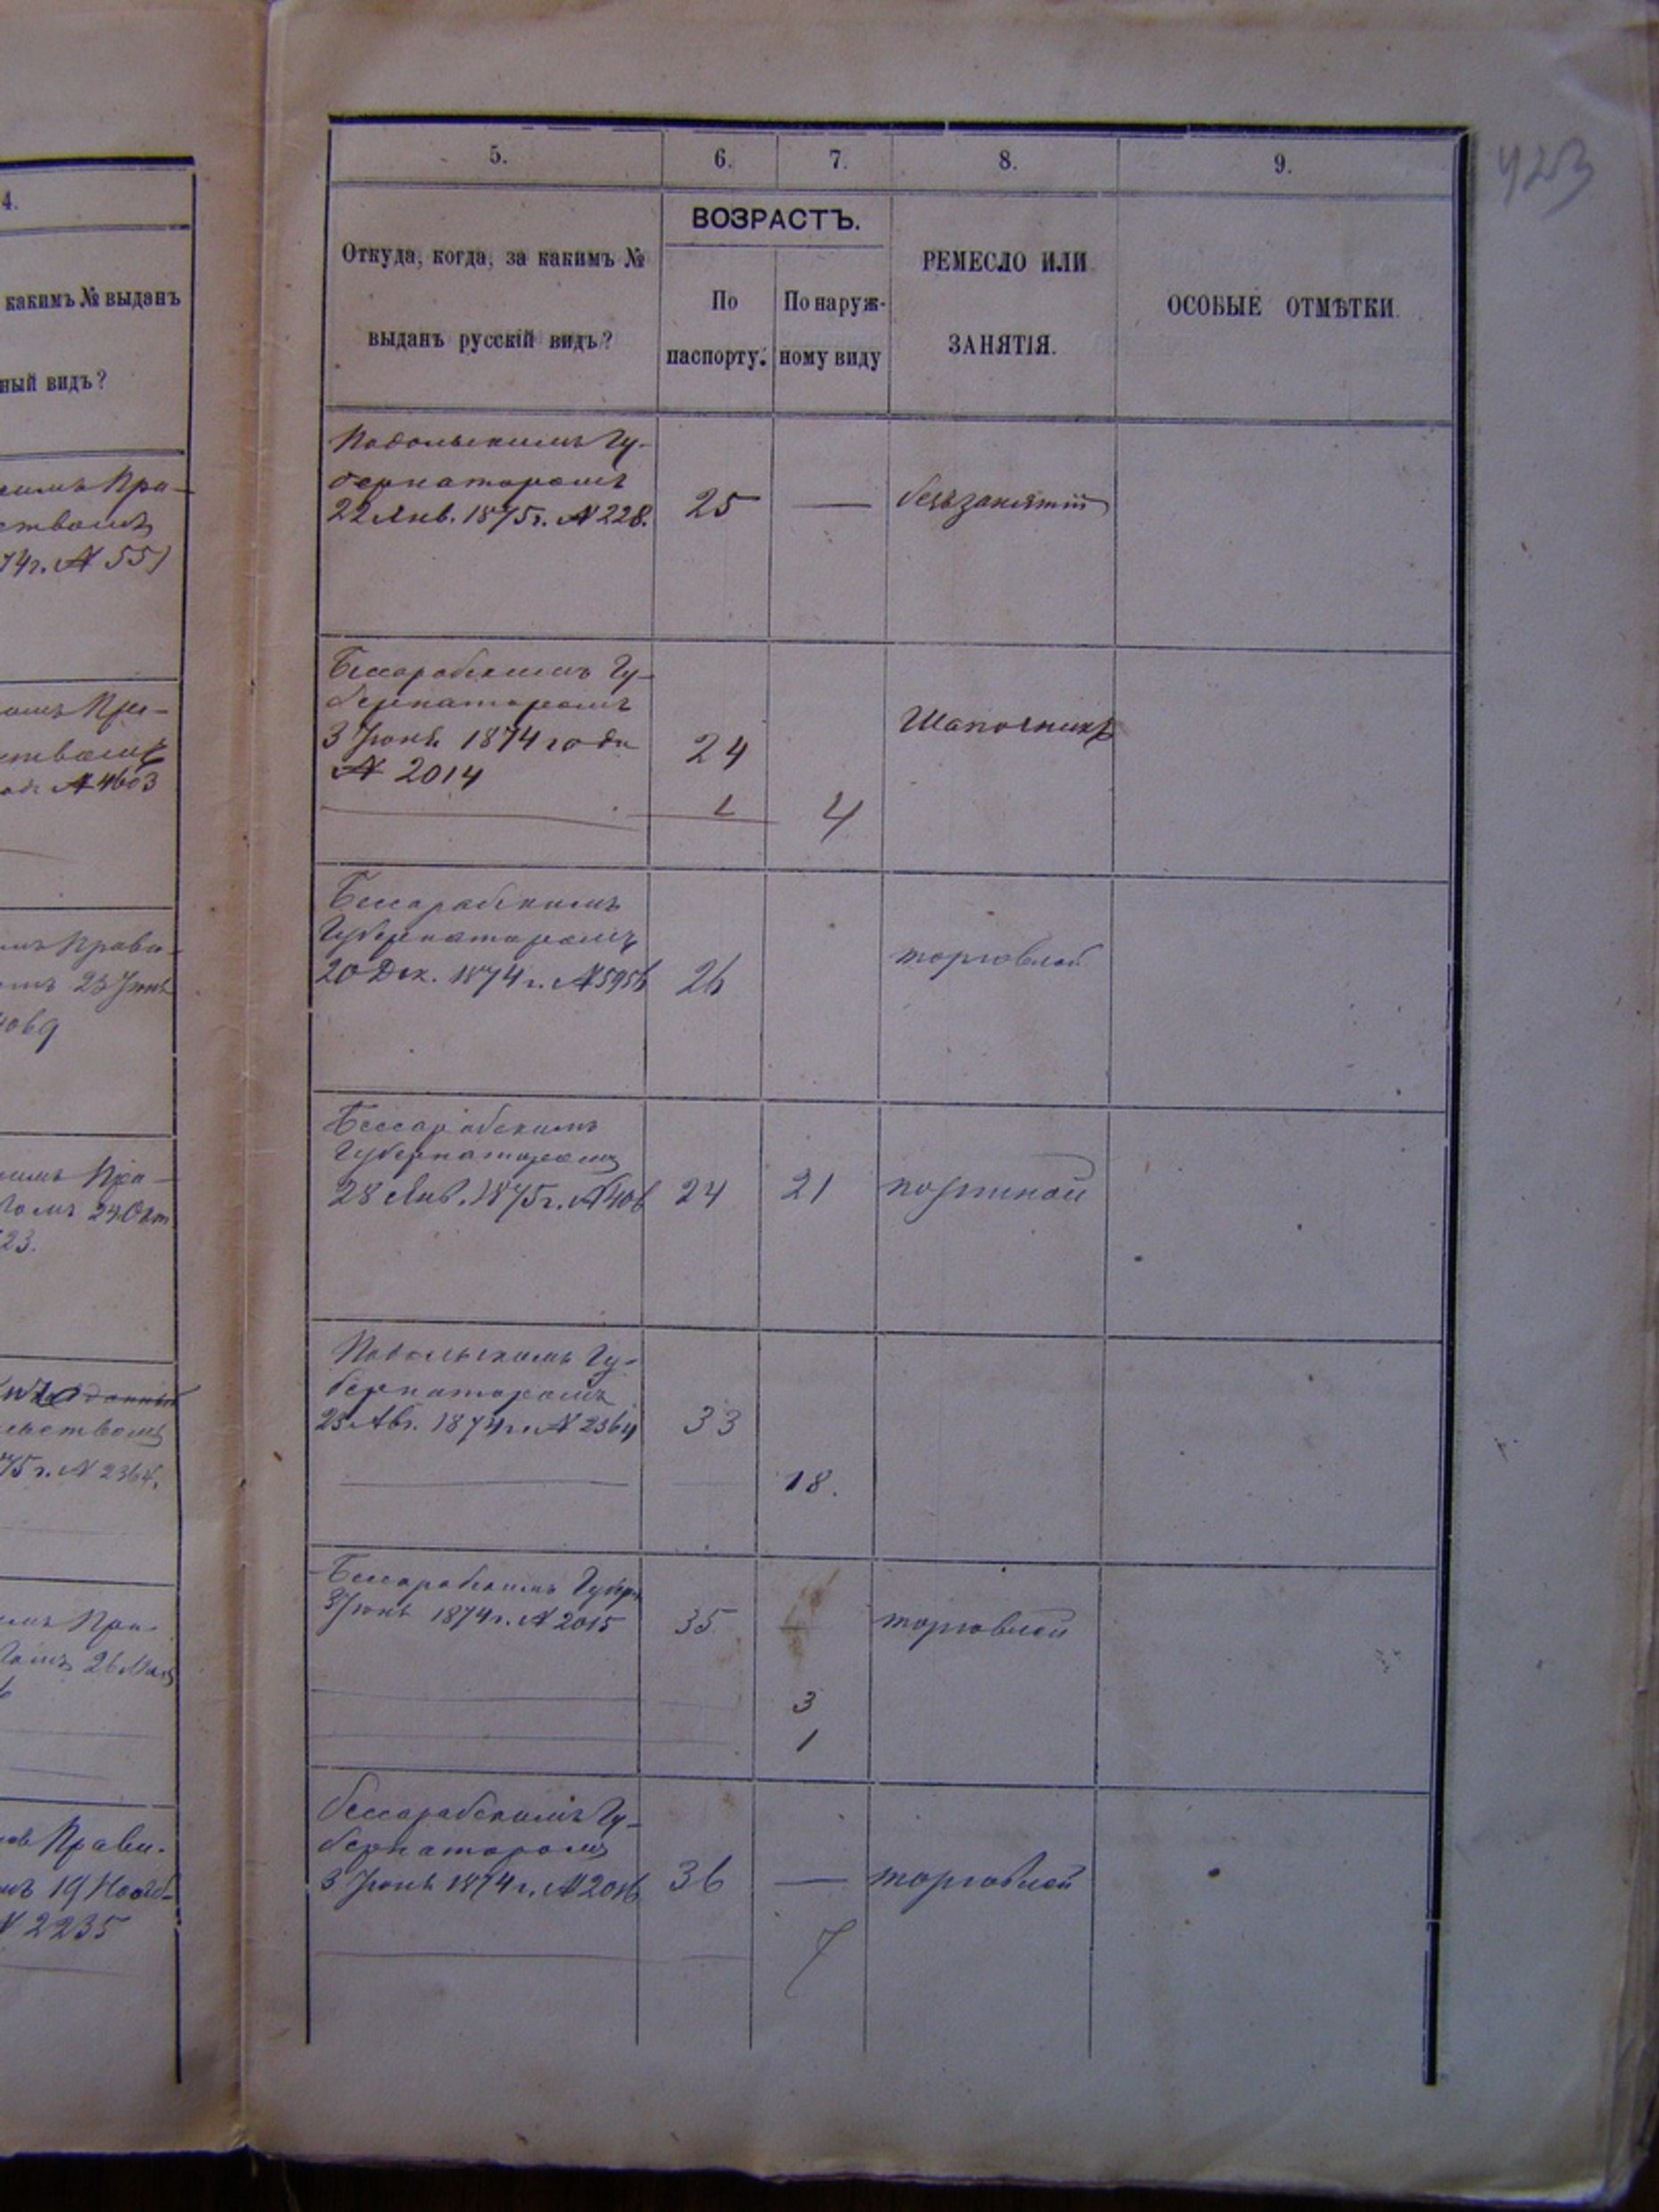 4.
какимъ № выданъ
ный видъ?
74г. № 551
№ 4603
23
24 Окт
23.
75 г. № 2364.
26 Мая
19 Нояб
№ 2235
423
5.
6.
7.
8.
9.
Откуда, когда, за какимъ №
выданъ русскій видъ?
ВОЗРАСТЪ.
По
паспорту.
По наруж-
ному виду
РЕМЕСЛО ИЛИ
ЗАНЯТІЯ.
ОСОБЫЕ ОТМѢТКИ.
Подольскимъ Гу-
бернаторомъ
22 Янв. 1875г. № 228.
25
—
безъ занятій
Бессарабскимъ Гу-
бернаторомъ
3 Іюня 1874 года
№ 2014
24
4
Шапочникъ
Бессарабскимъ
Губернаторомъ
20 Дек. 1874 г. № 5956
26
торговлей
Бессарабскимъ
Губернаторомъ
28 Янв. 1875г. № 406
24
21
портной
Подольскимъ Гу-
бернаторомъ
23 Авг. 1874г. № 2364
33
18.
Бессарабскимъ Губер
3 Іюня 1874г. № 2015
35
торговлей
3
1
Бессарабскимъ Гу-
бернаторомъ
3 Іюня 1874г. № 2016
36
—
торговлей
7